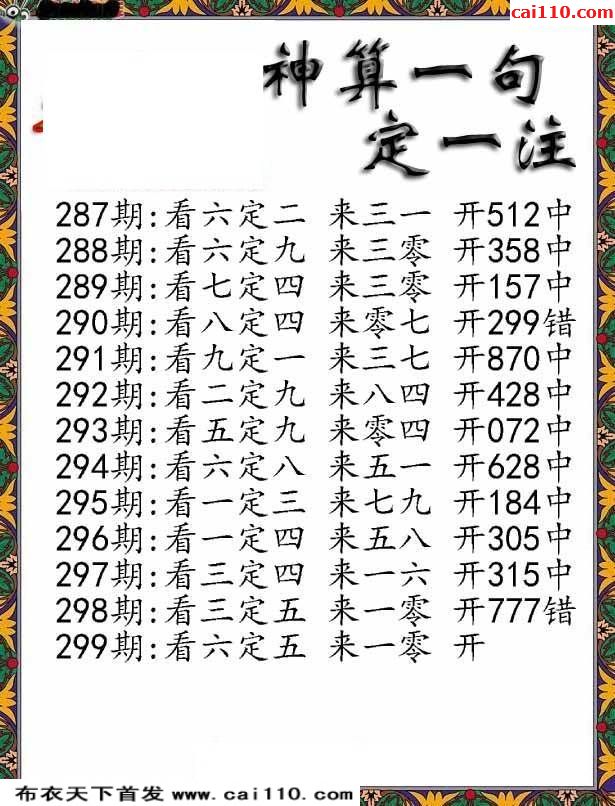 cai110.com
神算一句
定一注
287期:看六定二 来三一 开512中
288期:看六定九 来三零 开358中
289期:看七定四 来三零 开157中
290期:看八定四 来零七 开299错
291期:看九定一 来三七 开870中
292期:看二定九 来八四 开428中
293期:看五定九 来零四 开072中
294期:看六定八 来五一 开628中
295期:看一定三 来七九 开184中
296期:看一定四 来五八 开305中
297期:看三定四 来一六 开315中
298期:看三定五 来一零 开777错
299期:看六定五 来一零 开
布衣天下首发 www.cai110.com